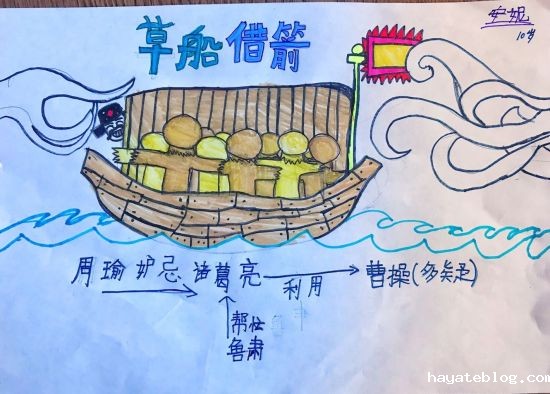 草船借箭
安妮
10岁
周瑜 妒忌 诸葛亮 利用 曹操(多疑)
帮忙
鲁肃
hayateblog.com